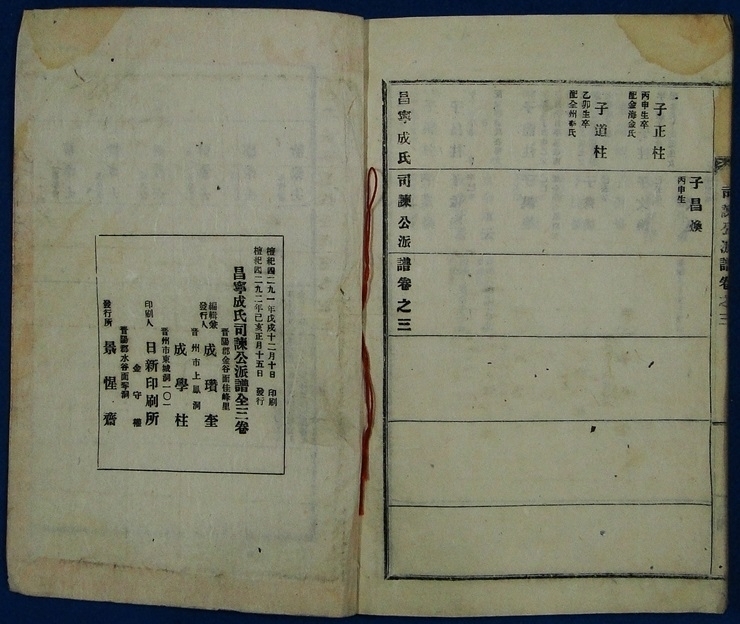 司諫公派譜卷之三
子正柱
丙申生卒
配金海金氏
子道柱
乙卯生卒
配全州李氏
子昌煥
丙申生
昌寧成氏司諫公派譜卷之三
檀紀四二九一年戊戌十二月十日 印刷
檀紀四二九二年己亥正月十五日 發行
昌寧成氏司諫公派譜全三卷
晋陽郡金谷面佳峰里
編輯兼
發行人 成瓚奎
晋州市上鳳洞
成學柱
晋州市東城洞一〇一
印刷人 日新印刷所
金守
晋陽郡水谷面
發行所 景惺齋